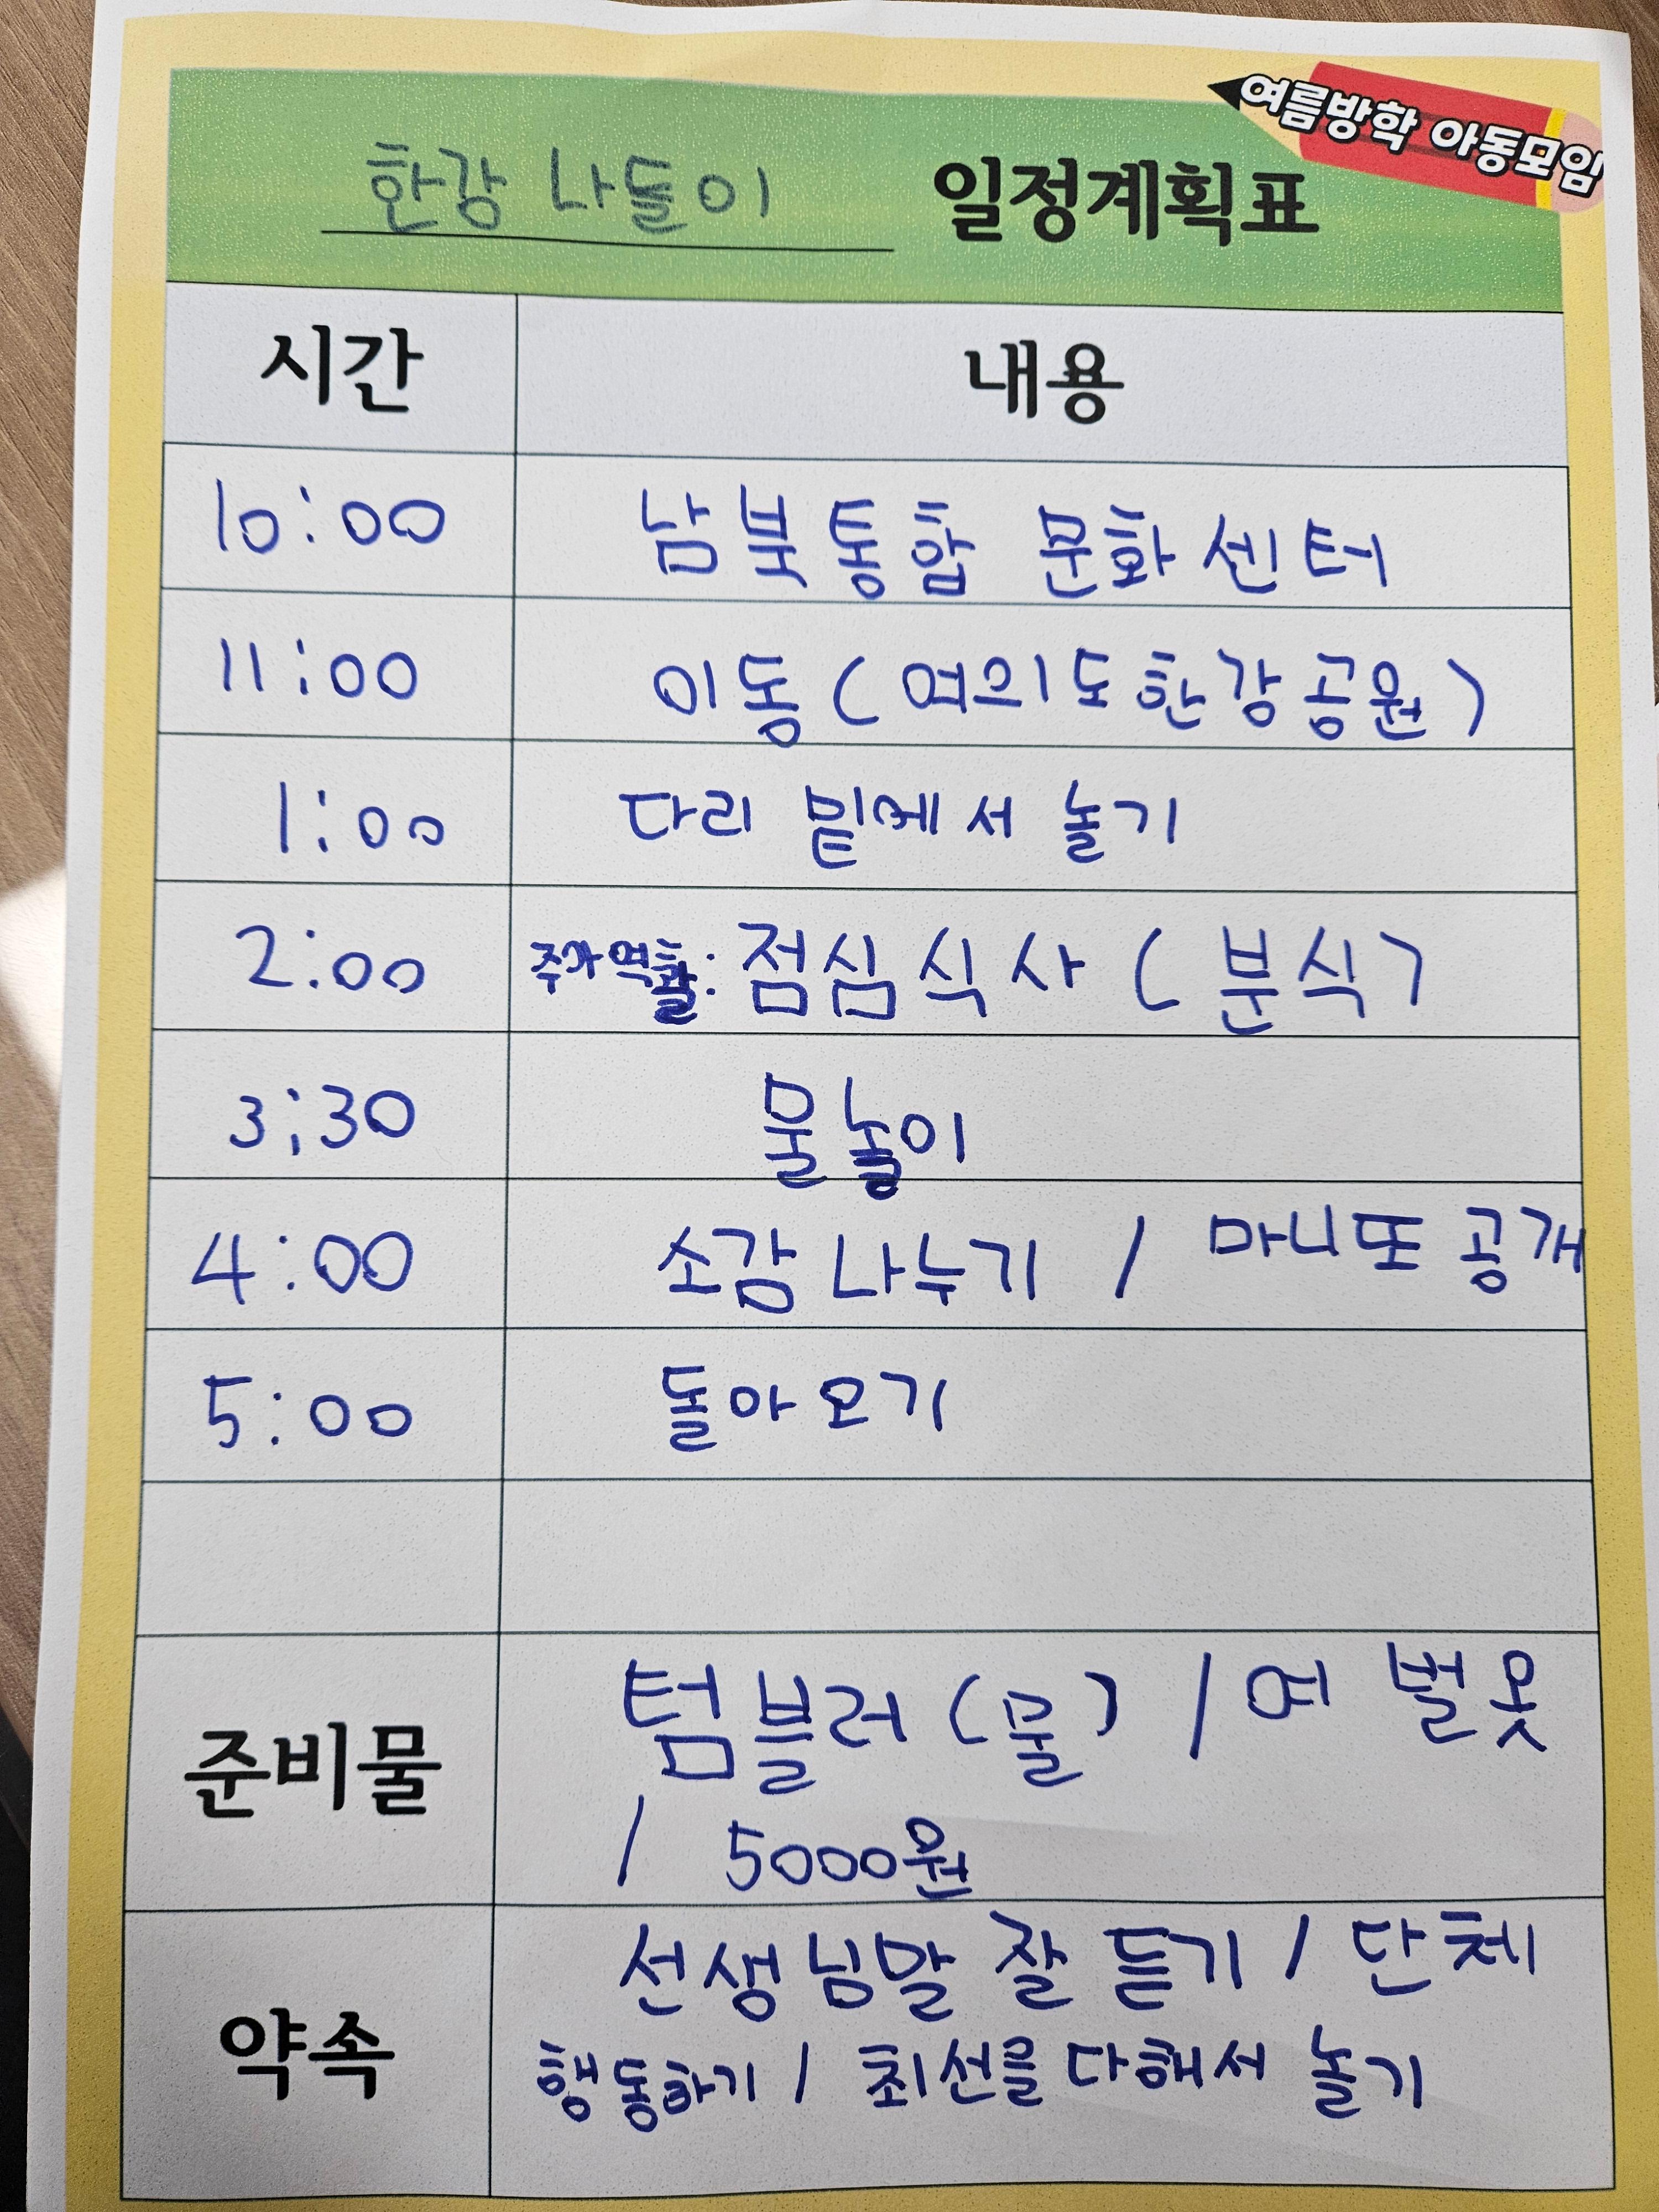 여름방학 아동모임
한강 나들이 일정계획표
시간 내용
10:00 남북통합 문화센터
11:00 이동(여의도한강공원)
1:00 다리 밑에서 놀기
2:00 추가역할: 점심식사(분식)
3:30 물놀이
4:00 소감나누기 / 마니또 공개
5:00 돌아오기
준비물
텀블러(물) / 여벌옷
/ 5000원
약속
선생님말 잘 듣기 / 단체
행동하기 / 최선을 다해서 놀기